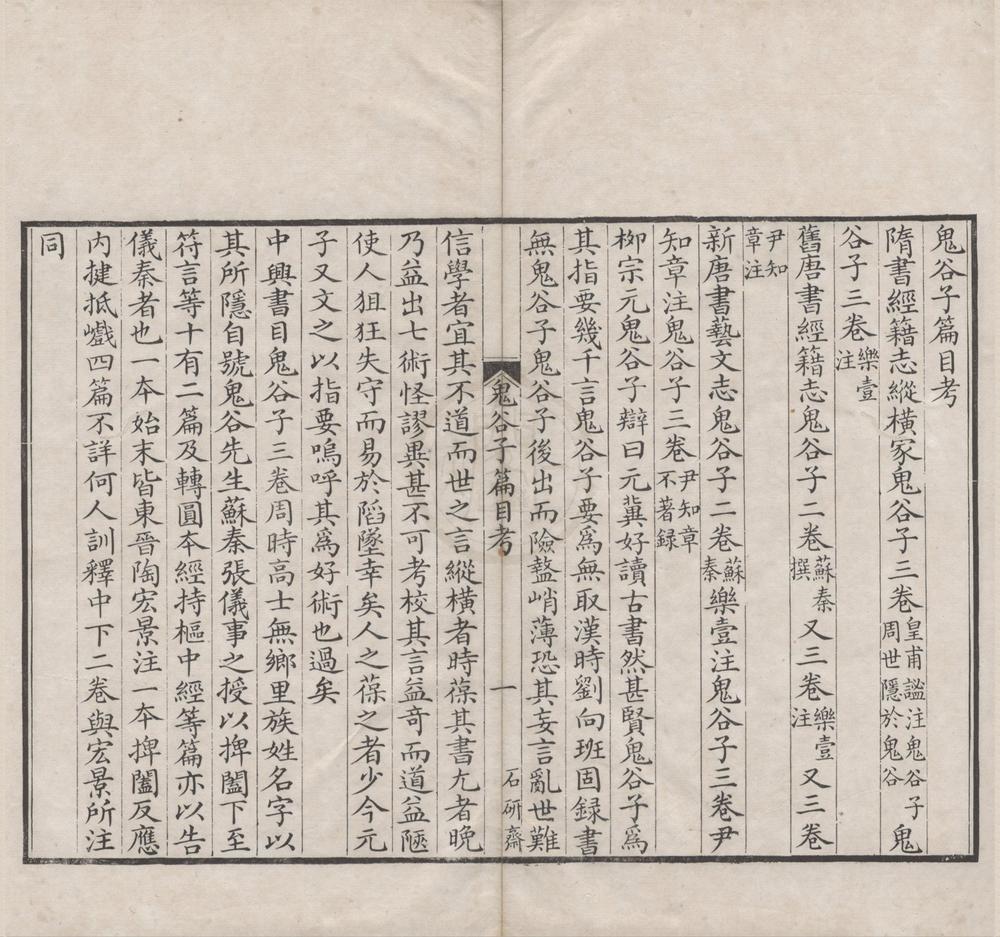 鬼谷子篇目考
隋書經籍志縱橫家鬼谷子三卷皇甫謐注鬼谷子周世隱於鬼谷鬼
谷子三卷樂壹注
舊唐書經籍志鬼谷子二卷蘇秦撰又三卷樂壹注又三卷
尹知章注
新唐書藝文志鬼谷子二卷蘇秦樂壹注鬼谷子三卷尹
知章注鬼谷子三卷尹知章不著録
栁宗元鬼谷子辯曰元冀好讀古書然甚賢鬼谷子爲
其指要幾千言鬼谷子要爲無取漢時劉向班固録書
無鬼谷子鬼谷子後出而險盭峭薄恐其妄言亂世難
鬼谷子篇目考
一
石研齋
信學者宜其不道而世之言縱橫者時葆其書尢者晚
乃益出七術怪謬異甚不可考校其言益奇而道益陿
使人狙狂失守而易於䧟墜幸矣人之葆之者少今元
子又文之以指要嗚呼其爲好術也過矣
中興書目鬼谷子三卷周時高士無鄉里族姓名字以
其所隱自號鬼谷先生蘇秦張儀事之授以捭闔下至
符言等十有二篇及轉圓夲經持樞中經等篇亦以告
儀秦者也一夲始末皆東晉陶宏景注一夲捭闔反應
内揵抵巇四篇不詳何人訓釋中下二卷與宏景所注
同